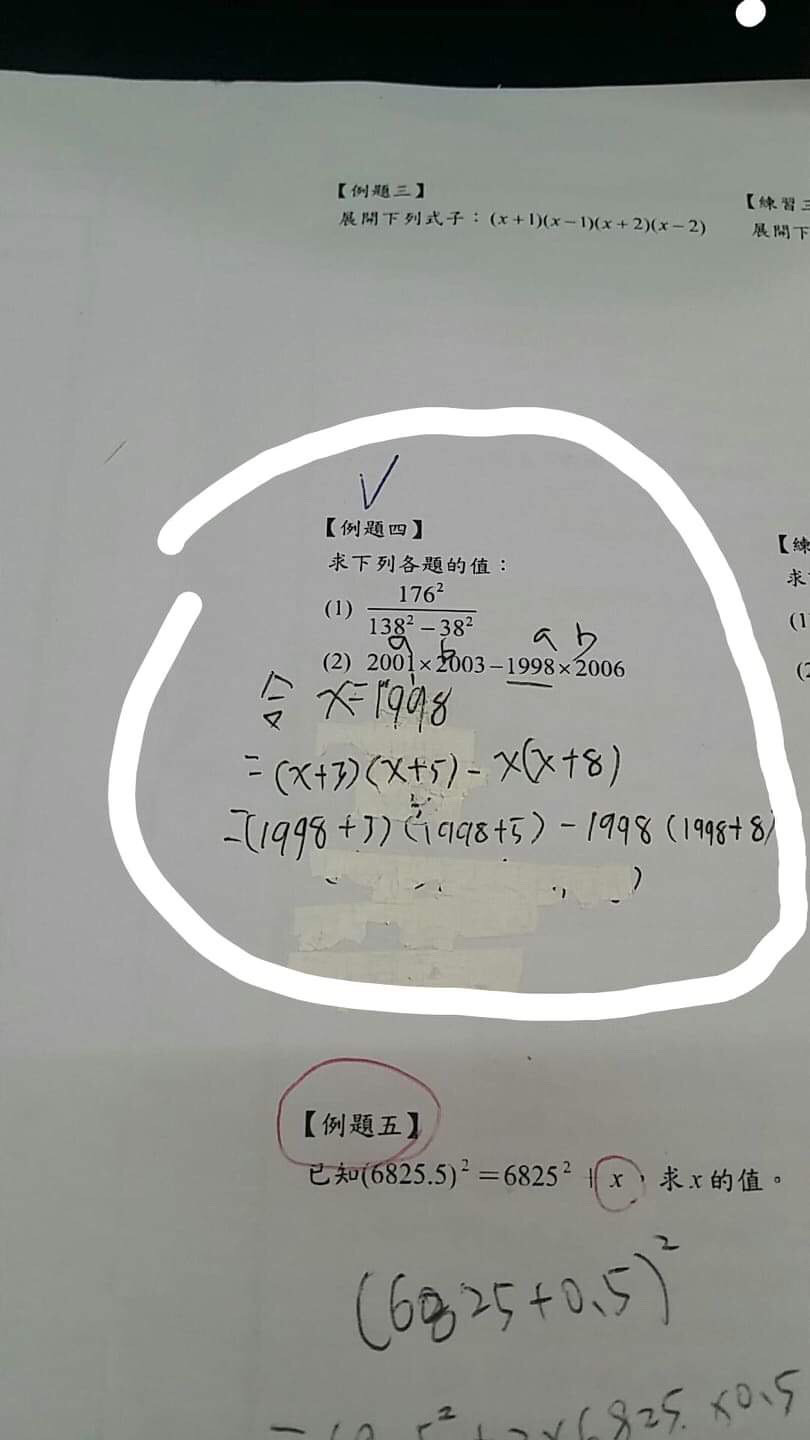 【例題三】
展開下列式子：(x+1)(x−1)(x+2)(x−2)
【練習三
展開下
✓
【例題四】
求下列各題的值：
(1) 176² / 138² − 38²
a b a b
(2) 2001×2003−1998×2006
令 x=1998
=(x+3)(x+5)-x(x+8)
=(1998+3)(1998+5)-1998(1998+8)
【練
求
(1
(2
【例題五】
已知(6825.5)²=6825²+x，求x的值。
(6825+0.5)²